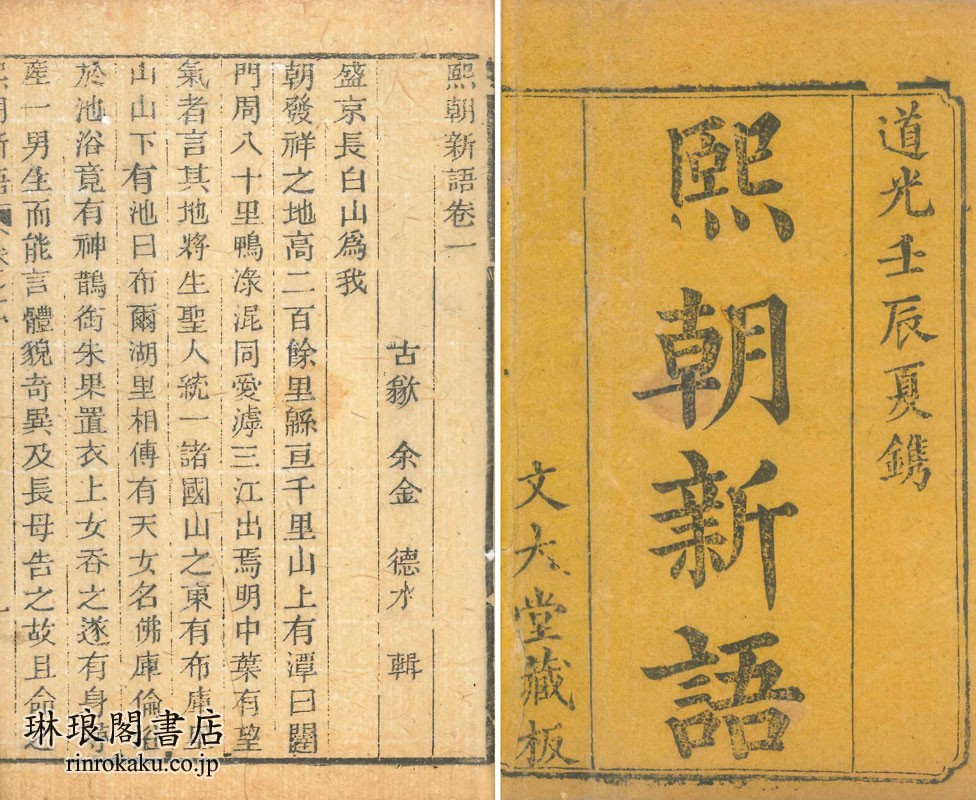 道光壬辰夏鐫
熙朝新語
文大堂藏板
熙朝新語卷一
古歙 余金 德水 輯
盛京長白山爲我
朝發祥之地高二百餘里緜亘千里山上有潭曰闥
門周八十里鴨淥混同愛滹三江出焉明中葉有望
氣者言其地將生聖人統一諸國山之東有布庫里
山山下有池曰布爾湖里相傳有天女名佛庫倫浴
於池浴竟有神鵲銜朱果置衣上女吞之遂有身尋
產一男生而能言體貌奇異及長母告之故且命之
熙朝新語 卷之一 一
琳琅閣書店
rinrokaku.co.jp